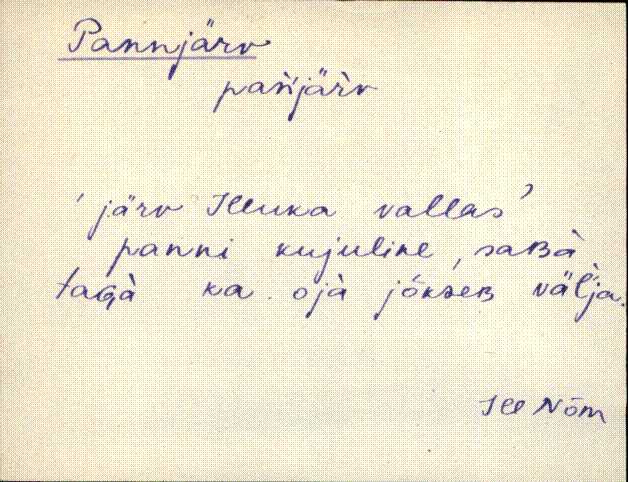 Pannjärv
pań̀järv
' järv Illuka vallas '
panni kujuline, saʙà
tagà ka ojà jókseʙ väl̀ja.
Ill Nõm